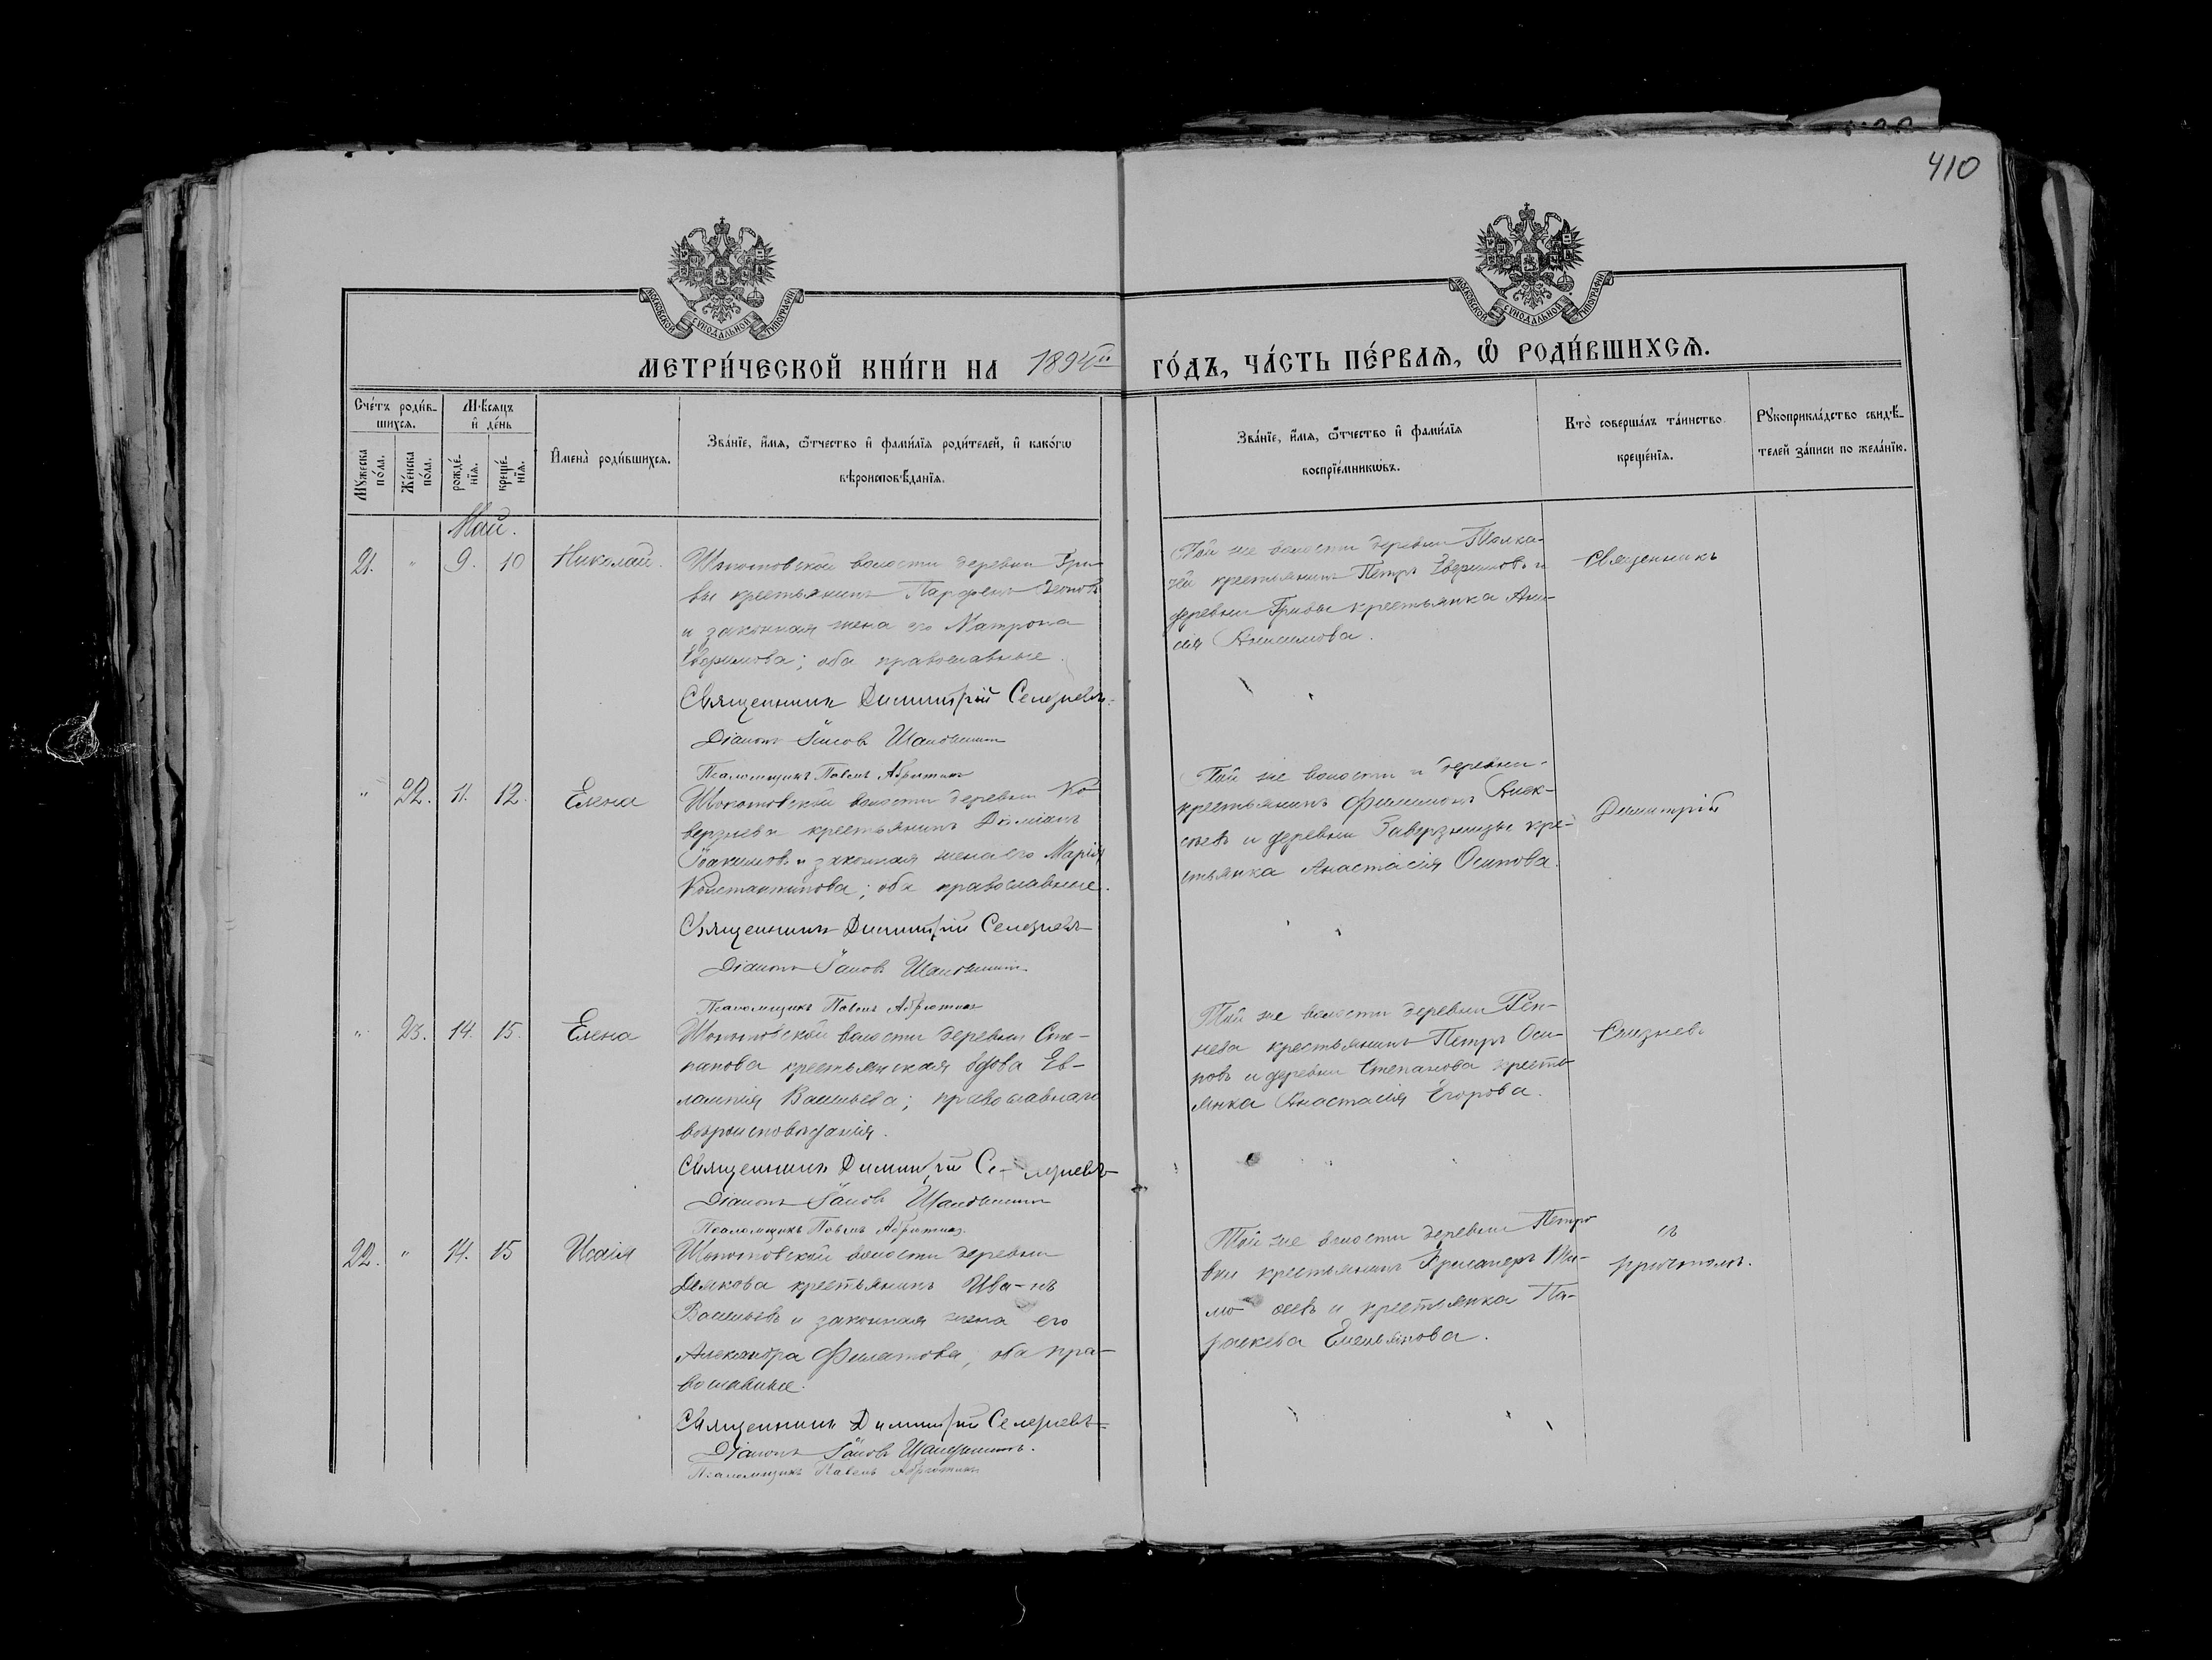 410
МОСКОВСКОЙ СУНОДАЛЬНОЙ ТИПОГРАФІИ
МОСКОВСКОЙ СУНОДАЛЬНОЙ ТИПОГРАФІИ
МЕТРИ́ЧЕСКОЙ КНИ́ГИ НА 1894й ГО́ДЪ, ЧА́СТЬ ПЕ́РВАѦ, Ѡ҆ РОДИ́ВШИХСѦ.
Сче́тъ роди́в-
шихсѧ.
Мꙋ́жеска по́ла.
Же́нска по́ла.
Мѣ́сѧцъ
и҆ де́нь
рожде́-
нїѧ.
креще́-
нїѧ.
И҆мена̀ роди́вшихсѧ.
Зва́нїе, и҆́мѧ, ѻ҆́тчество и҆ фами́лїѧ роди́телей, и҆ како́гѡ
вѣроисповѣ́данїѧ.
Зва́нїе, и҆́мѧ, ѻ҆́тчество и҆ фами́лїѧ
воспрїе́мникѡвъ.
Кто̀ соверша́лъ та́инство
креще́нїѧ.
Рꙋкоприкла́дство свидѣ́-
телей за́писи по жела́нїю.
Май.
21. " 9. 10 Николай.
волости деревни Гри-
вы крестьянинъ Парфенъ
и законная жена его Матрона
оба православные.
Священникъ Димитрій Селезневъ
Діаконъ Іаковъ
Псаломщикъ Павелъ
Той же волости деревни
крестьянинъ Петръ и
деревни Гривы крестьянка Ани-
сія Анисимова.
Священникъ
" 22. 11. 12. Елена
волости деревни Ко-
верзнева крестьянинъ Даміанъ
Іоакимовъ и законная жена его Марія
Константинова; оба православные.
Священникъ Димитрій Селезневъ
Діаконъ Іаковъ
Псаломщикъ Павелъ
Той же волости и деревни
крестьянинъ Филимонъ Алек-
сѣевъ и деревни кре-
стьянка Анастасія Осипова.
Димитрій
" 23. 14. 15. Елена
волости деревни Сте-
панова крестьянская вдова Ев-
лампія Васильева; православнаго
вѣроисповѣданія.
Священникъ Димитрій Селезневъ
Діаконъ Іаковъ
Псаломщикъ Павелъ
Той же волости деревни Рен-
нева крестьянинъ Петръ Оси-
повъ и деревни Степанова кресть-
янка Анастасія Егорова.
Селезневъ
22. " 14. 15 Исаія
волости деревни
Демкова крестьянинъ Ива-нъ
Васильевъ и законная жена его
Александра Филатова, оба пра-
вославные.
Священникъ Димитрій Селезневъ
Діаконъ Іаковъ
Псаломщикъ Павелъ
Той же волости деревни Петро-
вки крестьянинъ Ти-
мо-ѳеевъ и крестьянка Па-
раскева Емельянова.
съ
причтомъ.